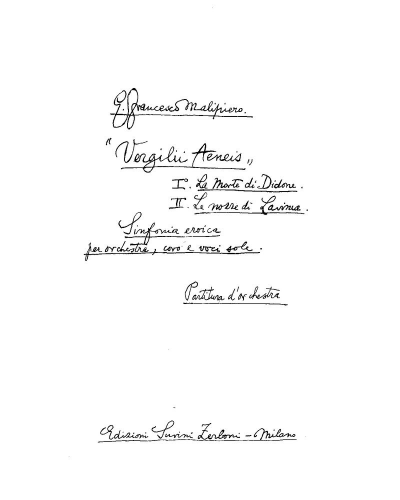 G. Francesco Malipiero.
"Vergilii Aeneis„
I. La Morte di Didone.
II. Le nozze di Lavinia.
Sinfonia eroica
per orchestra, coro e voci sole.
Partitura d'orchestra
Edizioni Suvini Zerboni - Milano